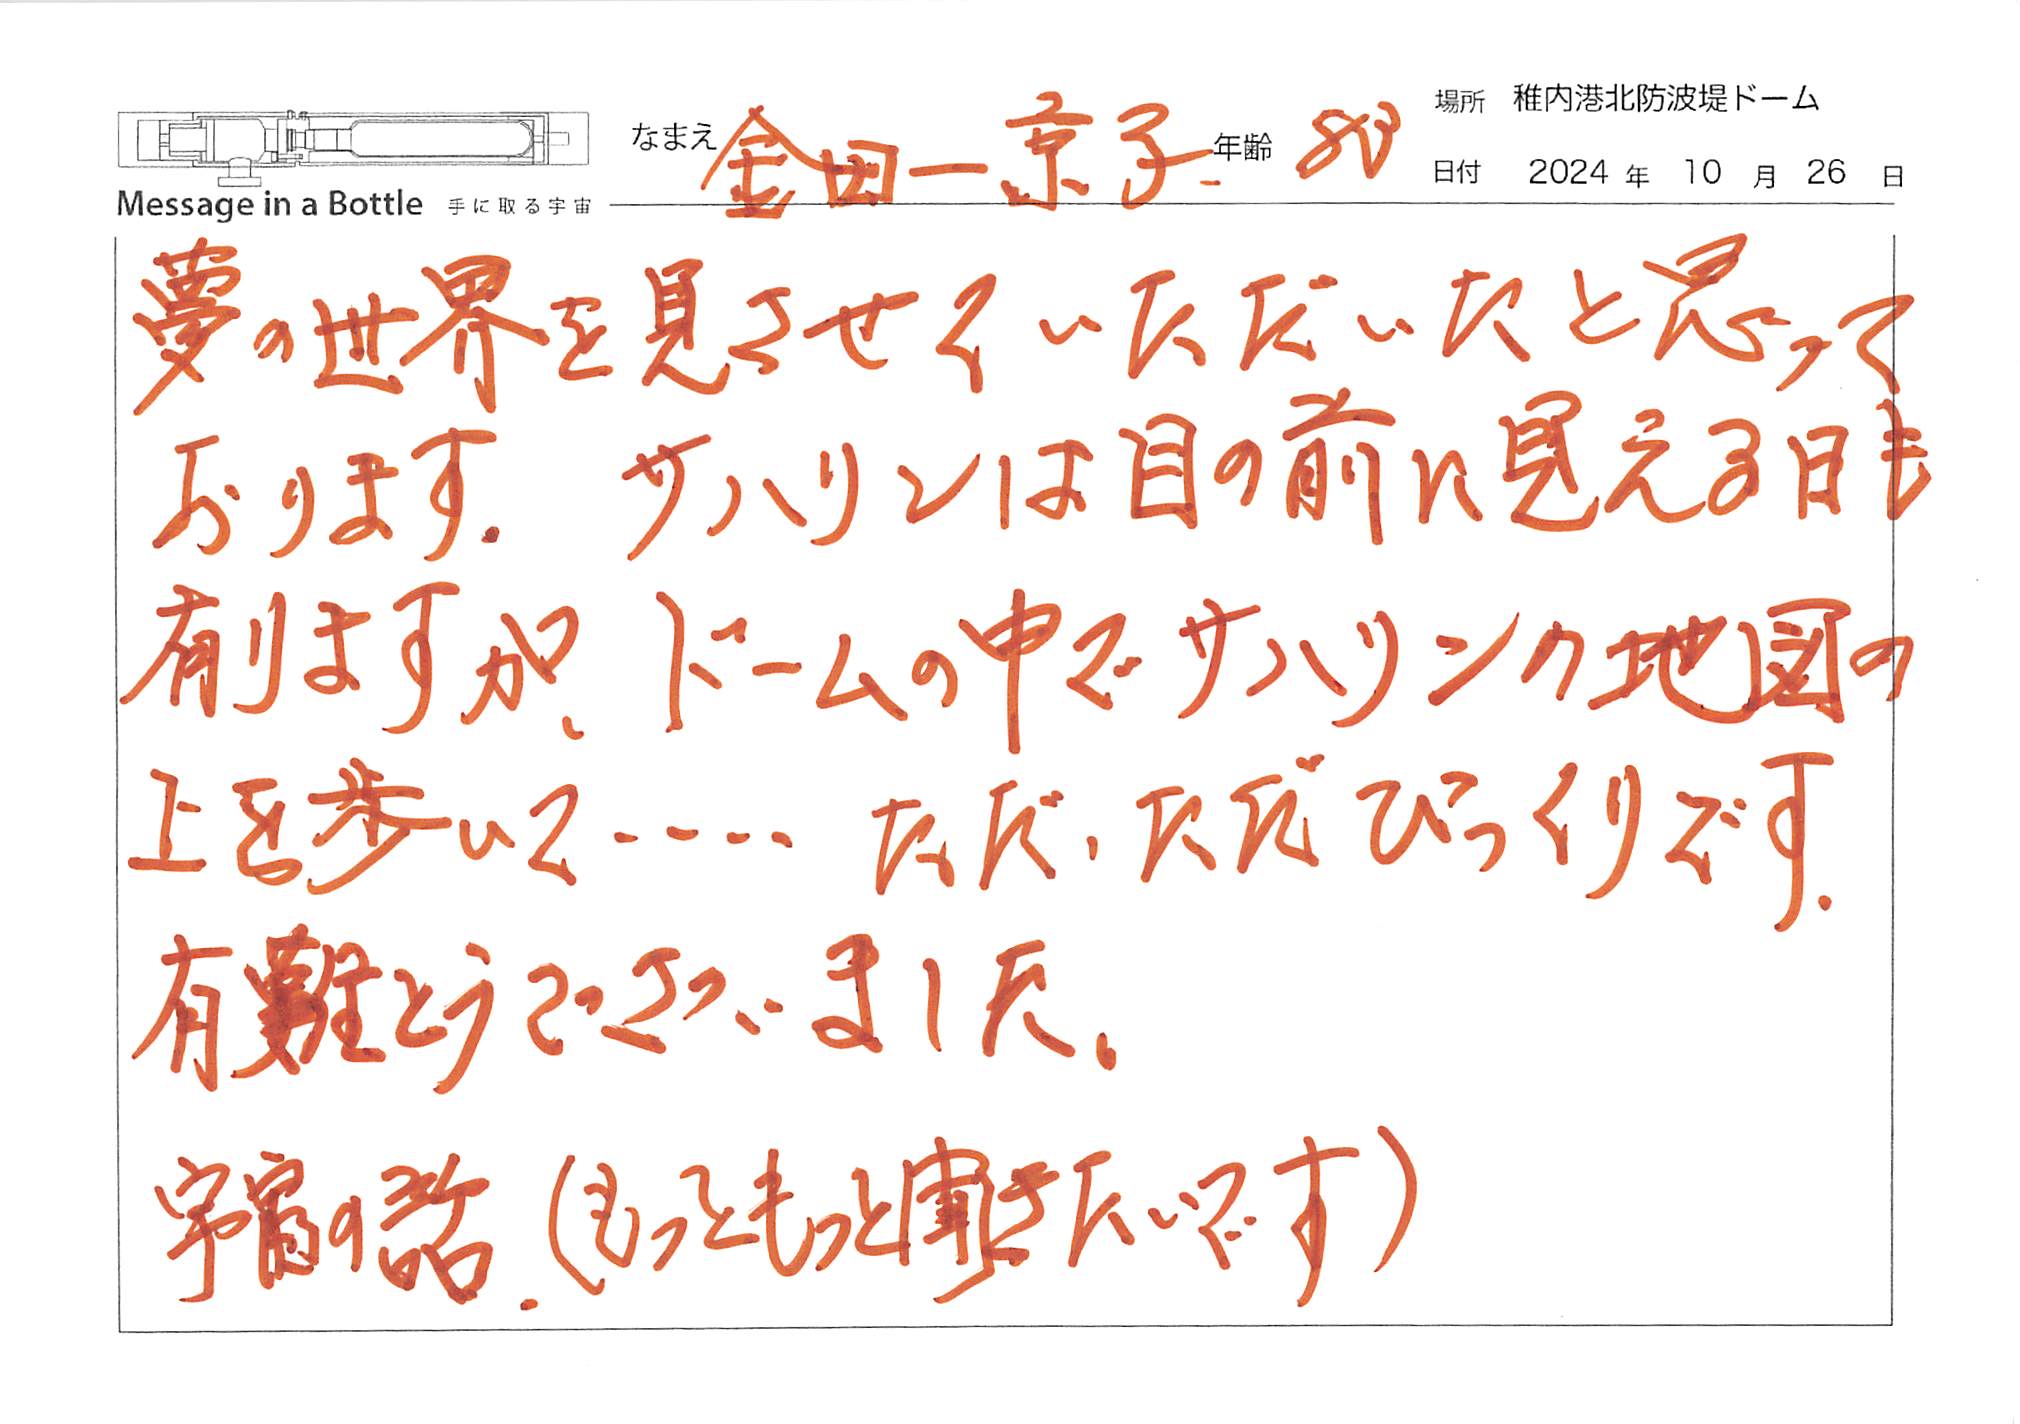 なまえ 金田一京子 年齢 80
場所 稚内港北防波堤ドーム
日付 2024 年 10 月 26 日
Message in a Bottle 手に取る宇宙
夢の世界を見させていただいたと思って
おります. サハリンは目の前に見える日も
有りますが、ドームの中でサハリンの地図の
上を歩いて・・・・・ ただ、ただびっくりです.
有難とうございました.
宇宙の話.(もっともっと聞きたいです)